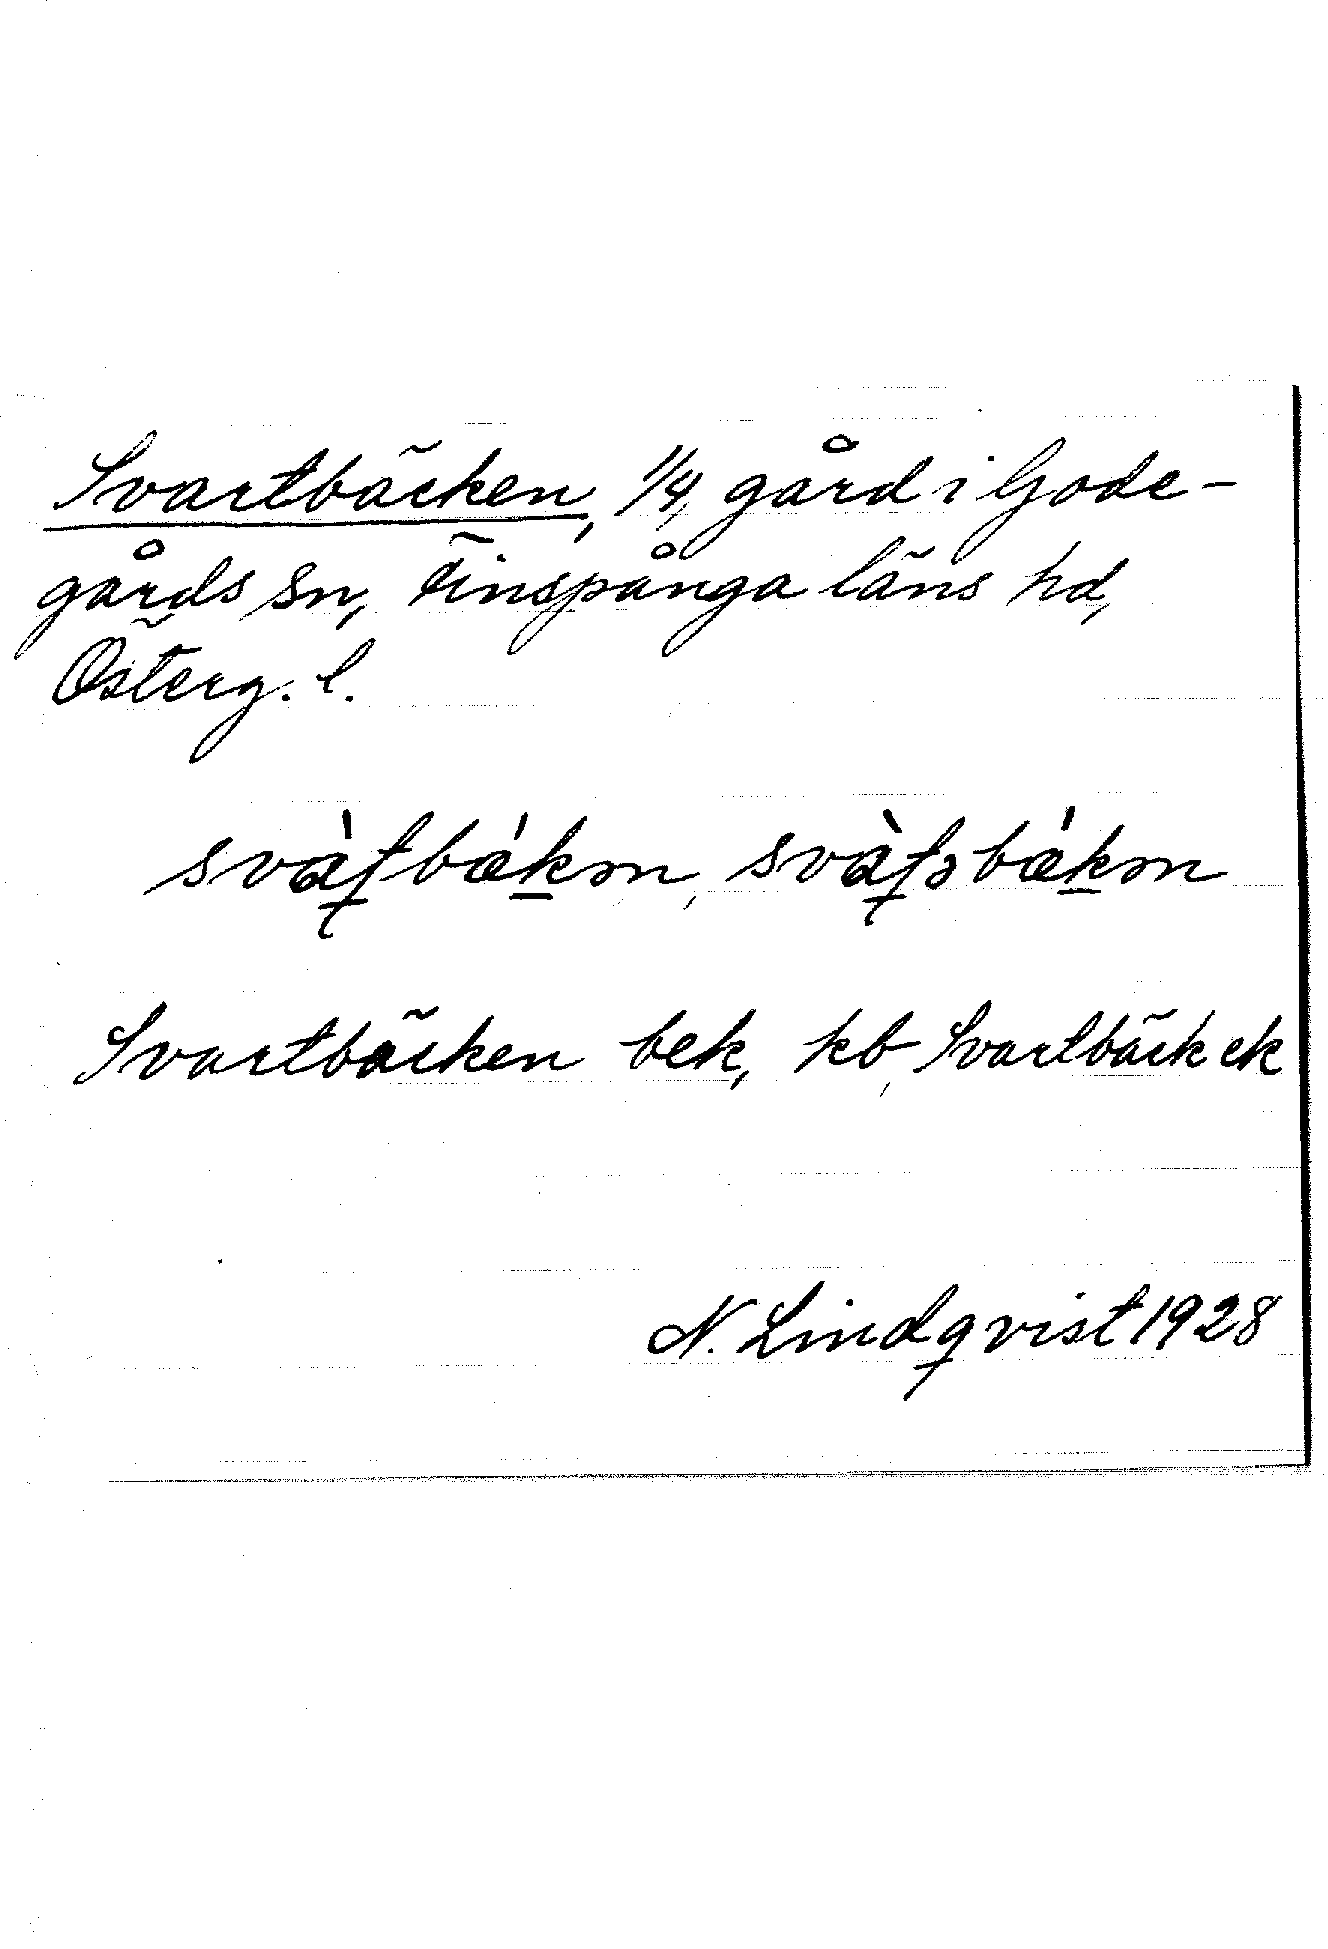 Svartbäcken, 1/4, gård i Gode-
gårds sn, Finspånga läns hd,
Österg. l.
svàʈbǽkən, svàʈəbǽkən
Svartbäcken bek, kb, Svartbäck ek
N. Lindqvist 1928